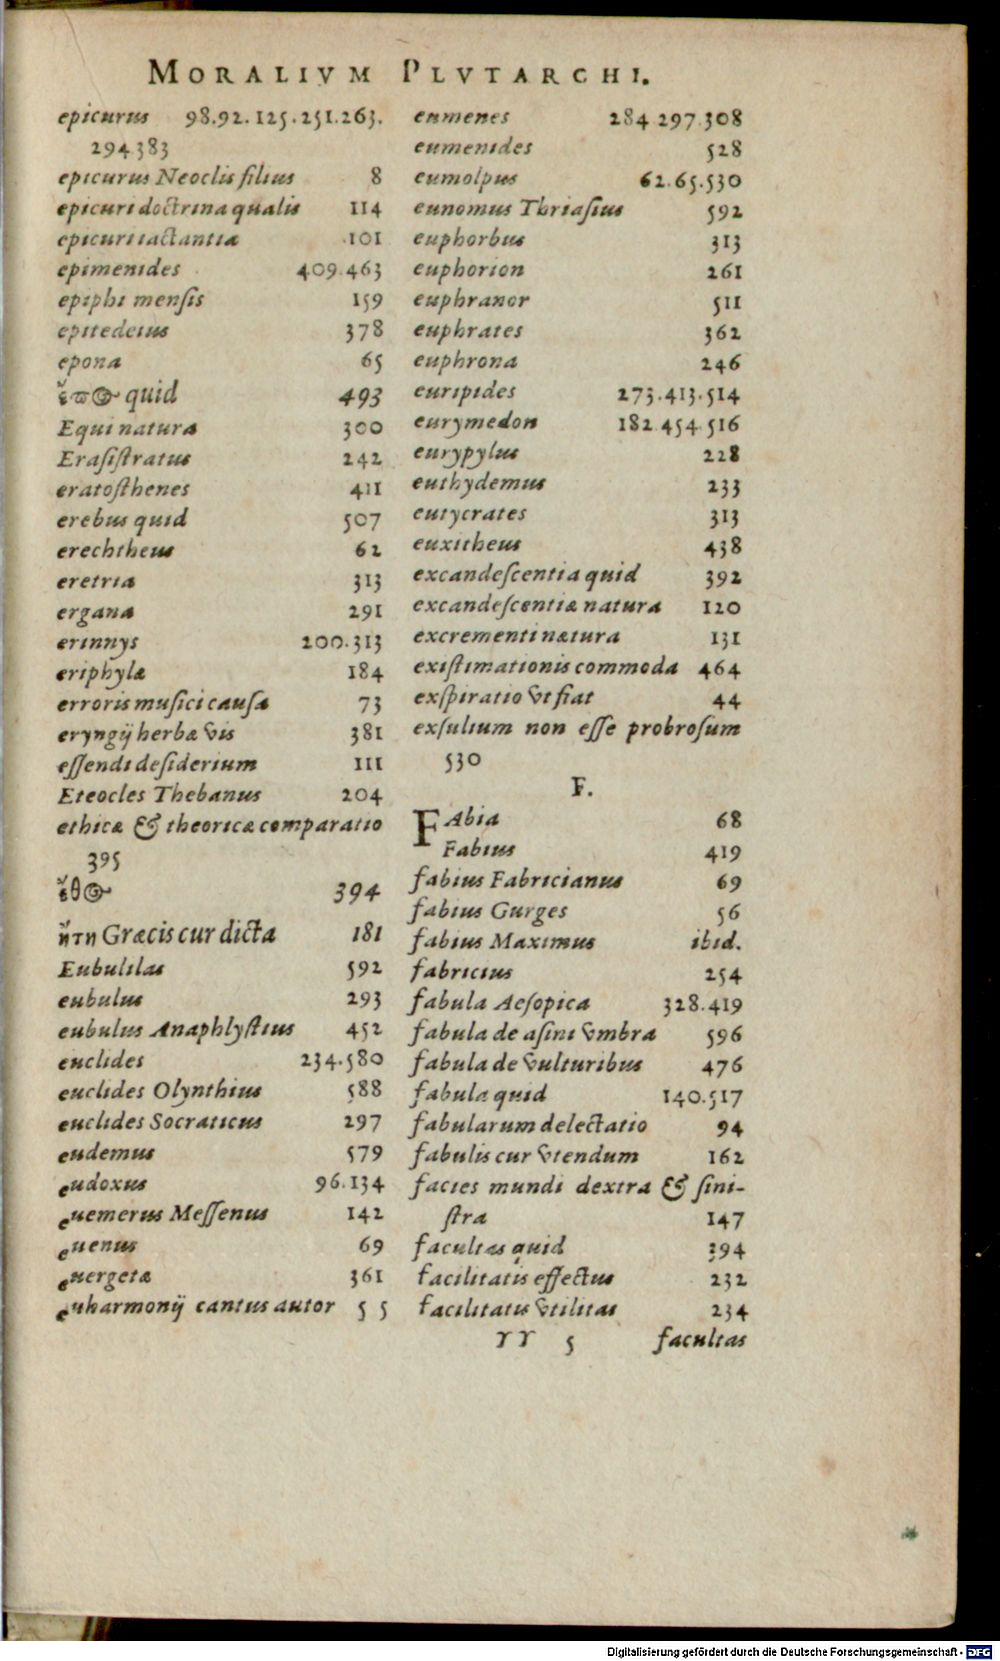 MORALIVM PLVTARCHI.
epicurus 98.92.125.251.263.
294.383
epicurus Neoclis filius 8
epicuri doctrina qualis 114
epicuri iactantia 101
epimenides 409.463
epiphi mensis 159
epitedeius 378
epona 65
ἔπος quid 493
Equi natura 300
Erasistratus 242
eratosthenes 411
erebus quid 507
erechtheus 62
eretria 313
ergana 291
erinnys 200.313
eriphyla 184
erroris musici causa 73
eryngij herbæ vis 381
essendi desiderium 111
Eteocles Thebanus 204
ethicæ & theoricæ comparatio
395
ἔθος 394
ἤτη Græcis cur dicta 181
Eubulilas 592
eubulus 293
eubulus Anaphlystius 452
euclides 234.580
euclides Olynthius 588
euclides Socraticus 297
eudemus 579
eudoxus 96.134
euemerus Messenus 142
euenus 69
euergetæ 361
euharmonij cantus autor 5 5
eumenes 284 297.308
eumenides 528
eumolpus 62.65.530
eunomus Thriasius 592
euphorbus 313
euphorion 261
euphranor 511
euphrates 362
euphrona 246
euripides 273.413.514
eurymedon 182.454.516
eurypylus 228
euthydemus 233
eutycrates 313
euxitheus 438
excandescentia quid 392
excandescentiæ natura 120
excrementi natura 131
existimationis commoda 464
exspiratio vt fiat 44
exsulium non esse probrosum
530
F.
FAbia 68
Fabius 419
fabius Fabricianus 69
fabius Gurges 56
fabius Maximus ibid.
fabricius 254
fabula Aesopica 328.419
fabula de asini vmbra 596
fabula de vulturibus 476
fabula quid 140.517
fabularum delectatio 94
fabulis cur vtendum 162
facies mundi dextra & sini-
stra 147
facultas quid 394
facilitatis effectus 232
facilitatis vtilitas 234
YY 5 facultas
Digitalisierung gefördert durch die Deutsche Forschungsgemeinschaft - DFG